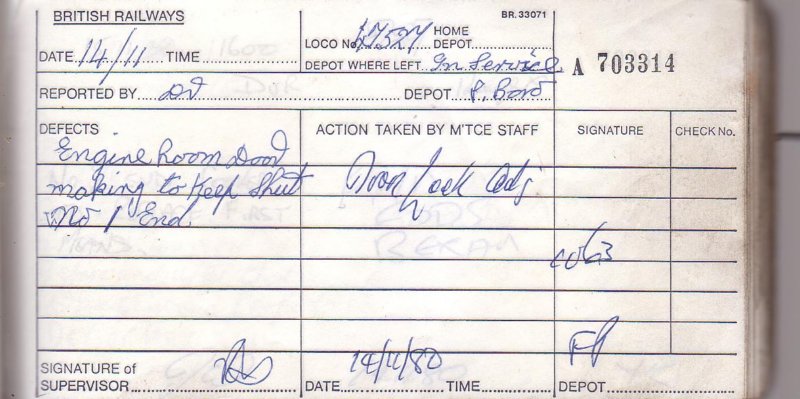 BRITISH RAILWAYS
BR. 33071
DATE 14/11 TIME
LOCO No. 47527 HOME DEPOT
DEPOT WHERE LEFT In Service
A 703314
REPORTED BY DEPOT P. Boro
DEFECTS
ACTION TAKEN BY M'TCE STAFF
SIGNATURE
CHECK No.
Engine Room Door
making to Keep Shut
No 1 End.
Door Lock Adj
SIGNATURE of
SUPERVISOR
DATE 14/11/80 TIME DEPOT FP